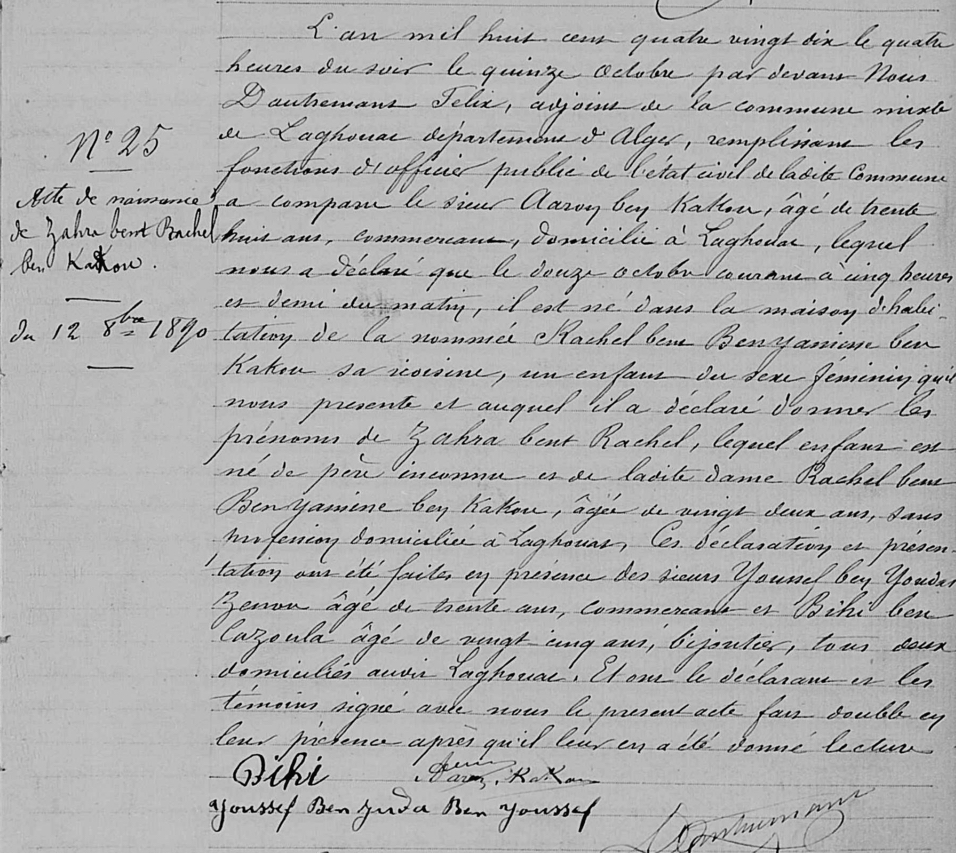 N° 25
Acte de naissance
de Zahra bent Rachel
ben Kakou.
du 12 8bre 1890
L'an mil huit cent quatre vingt dix le quatre
heures du soir le quinze Octobre par devant Nous
Dautremant Felix, adjoint de la commune mixte
de Laghouat département d'Alger, remplissant les
fonctions d'officier public de l'état civil de ladite Commune
a comparu le sieur Aaron ben Kakou, âgé de trente
huit ans, commercant, domicilié à Laghouat, lequel
nous a déclaré que le douze octobre courant a cinq heures
et demi du matin, il est né dans la maison d'habi-
tation de la nommée Rachel bent Ben yamine ben
Kakou sa voisine, un enfant du sexe féminin qu'il
nous presente et auquel il a déclaré donner les
prénoms de Zahra bent Rachel, lequel enfant est
né de père inconnu et de ladite dame Rachel bent
Ben yamine ben Kakou, âgée de vingt deux ans, sans
profession domiciliée à Laghouat, Ces déclaration et présen-
tation ont été faites en présence des sieurs Youssef ben Youdas
Zenou âgé de trente ans, commercant et Bihi ben
Lazoula âgé de vingt cinq ans, bijoutier, tous deux
domiciliés audit Laghouat. Et ont le déclarant et les
témoins signé avec nous le present acte fait double en
leur présence après qu'il leur en a été donné lecture
Bihi Aaron Kakou
Youssef Ben Juda Ben Youssef